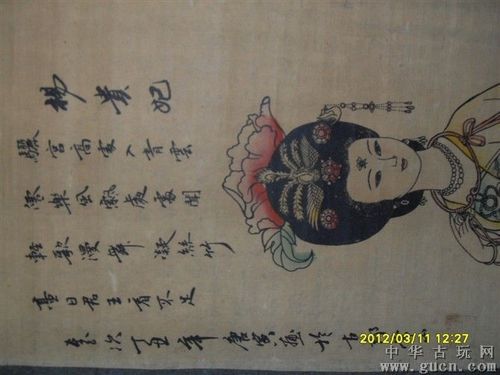 楊貴妃
驪宮高處入青雲
僊樂風飄處處聞
輕歌漫舞凝絲竹
盡日君王看不足
歲次丁丑年唐寅畫於古
2012/03/11 12:27
中华古玩网
www.gucn.com